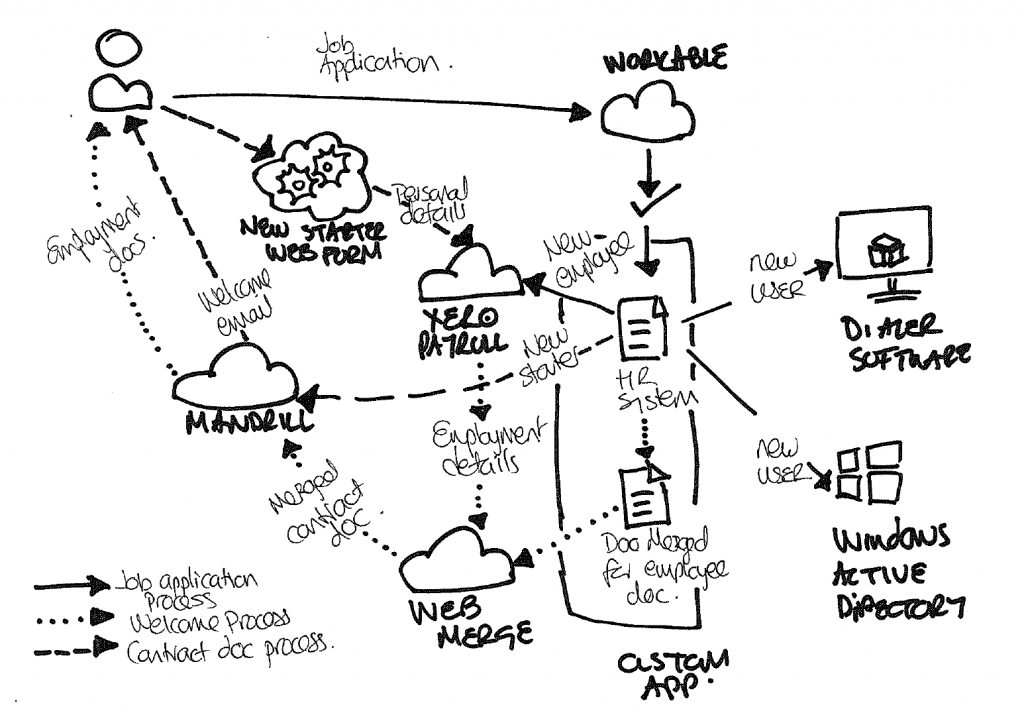 Job
Application.
WORKABLE
NEW STARTER
WEB FORM
Personal
details
New
employee
new
USER
DIALER
SOFTWARE
Employment
docs.
Welcome
email
XERO
PAYROLL
New
starter
HR
System
MANDRILL
Employment
details
new
USER
Merged
contract
doc.
Doc Merged
for employee
doc.
WINDOWS
ACTIVE
DIRECTORY
WEB
MERGE
CUSTOM
APP.
Job application
Process
Welcome Process
Contract doc process.